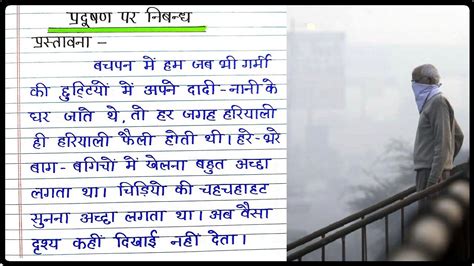 प्रदूषण पर निबन्ध
प्रस्तावना –
बचपन में हम जब भी गर्मी
की छुट्टियों में अपने दादी-नानी के
घर जाते थे, तो हर जगह हरियाली
ही हरियाली फैली होती थी। हरे-भरे
बाग-बगिचों में खेलना बहुत अच्छा
लगता था। चिड़ियों की चहचहाहट
सुनना अच्छा लगता था। अब वैसा
दृश्य कहीं दिखाई नहीं देता।